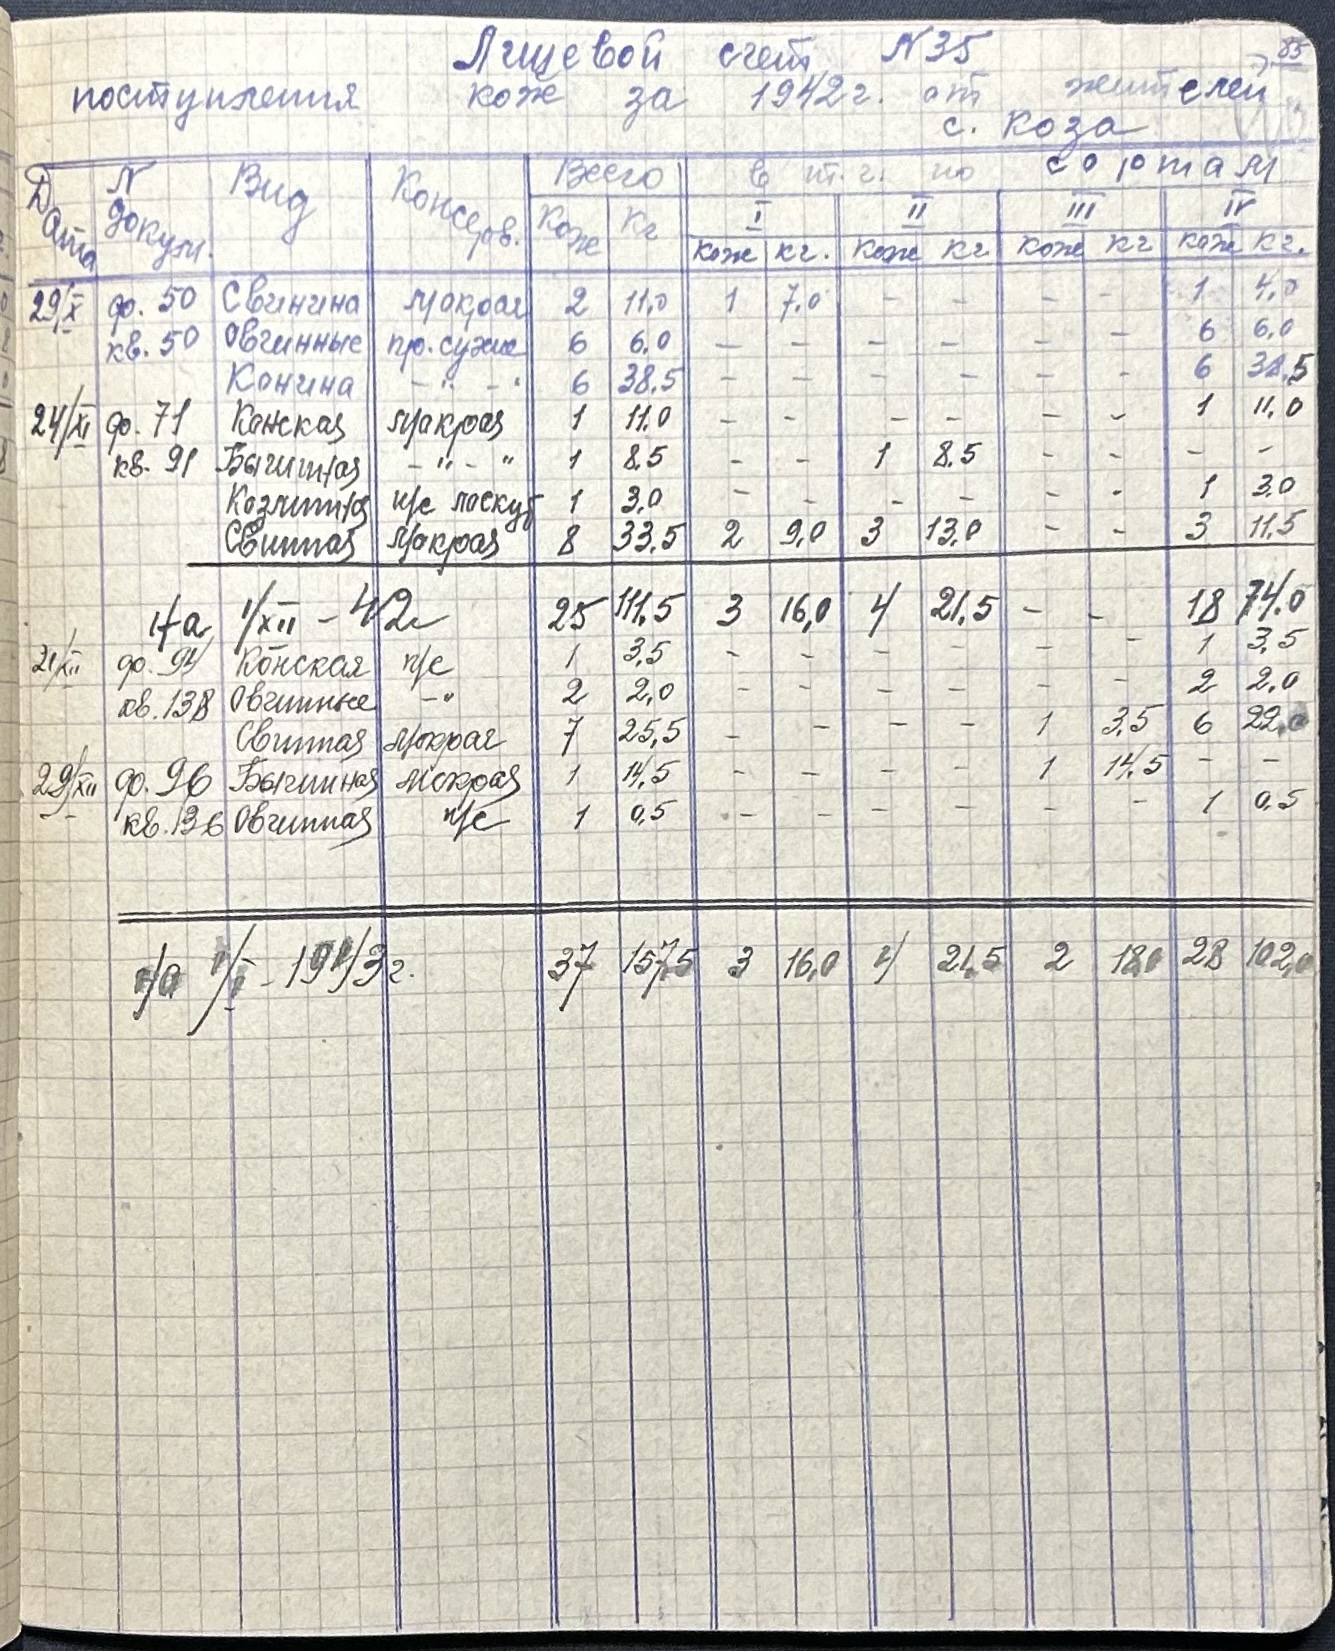 85
Лицевой счет N 35
поступления кож за 1942 г. от жителей
с. Коза
Дата N докум. Вид Консеров. Всего в т.ч. по сортам
Кож Кг I II III IV
кож кг. кож кг кож кг кож кг.
29/X ф. 50 Свинина мокрая 2 11,0 1 7,0 - - - - 1 4,0
кв. 50 Овчинные пр. сухие 6 6,0 - - - - - - 6 6,0
Конина - " - " 6 38,5 - - - - - - 6 38,5
24/XI ф. 71 Конская мокрая 1 11,0 - - - - - - 1 11,0
кв. 91 Бычинная - " - " 1 8,5 - - 1 8,5 - - - -
Козлинная п/с лоскут 1 3,0 - - - - - - 1 3,0
Свинная мокрая 8 33,5 2 9,0 3 13,0 - - 3 11,5
На 1/XII - 42 25 111,5 3 16,0 4 21,5 - - 18 74,0
21/XII ф. 94 Конская п/с 1 3,5 - - - - - - 1 3,5
кв. 138 Овчинные - " 2 2,0 - - - - - - 2 2,0
Свинная мокрая 7 25,5 - - - - 1 3,5 6 22,0
29/XII ф. 96 Бычинная мокрая 1 14,5 - - - - 1 14,5 - -
кв. 136 Овчинная п/с 1 0,5 - - - - - - 1 0,5
На 1/I - 1943 г. 37 157,5 3 16,0 4 21,5 2 18,0 28 102,0